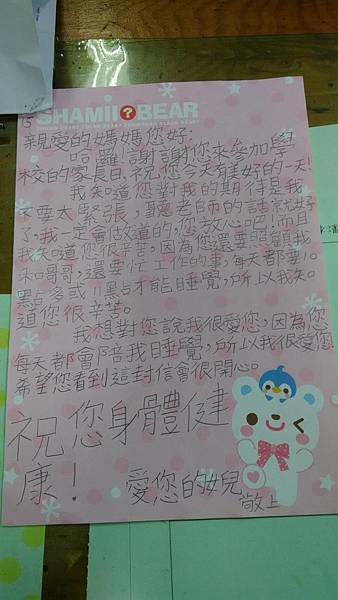 15
SHAMII BEAR
親愛的媽媽您好:
哈囉!謝謝您來參加學
校的家長日,祝您今天有美好的一天!
我知道您對我的期待是我
不要太緊張,聽老師的話就好
了,我一定會做道的,您放心吧!而且
我知道您很辛苦,因為您還要照顧我
和哥哥,還要忙工作的事,每天都要10
點多或11點才能睡覺,所以我知
道您很辛苦。
我想對您說我很愛您,因為您
每天都會陪我睡覺,所以我很愛您
希望您看到這封信會很開心。
祝您身體健
康!
愛您的女兒
敬上